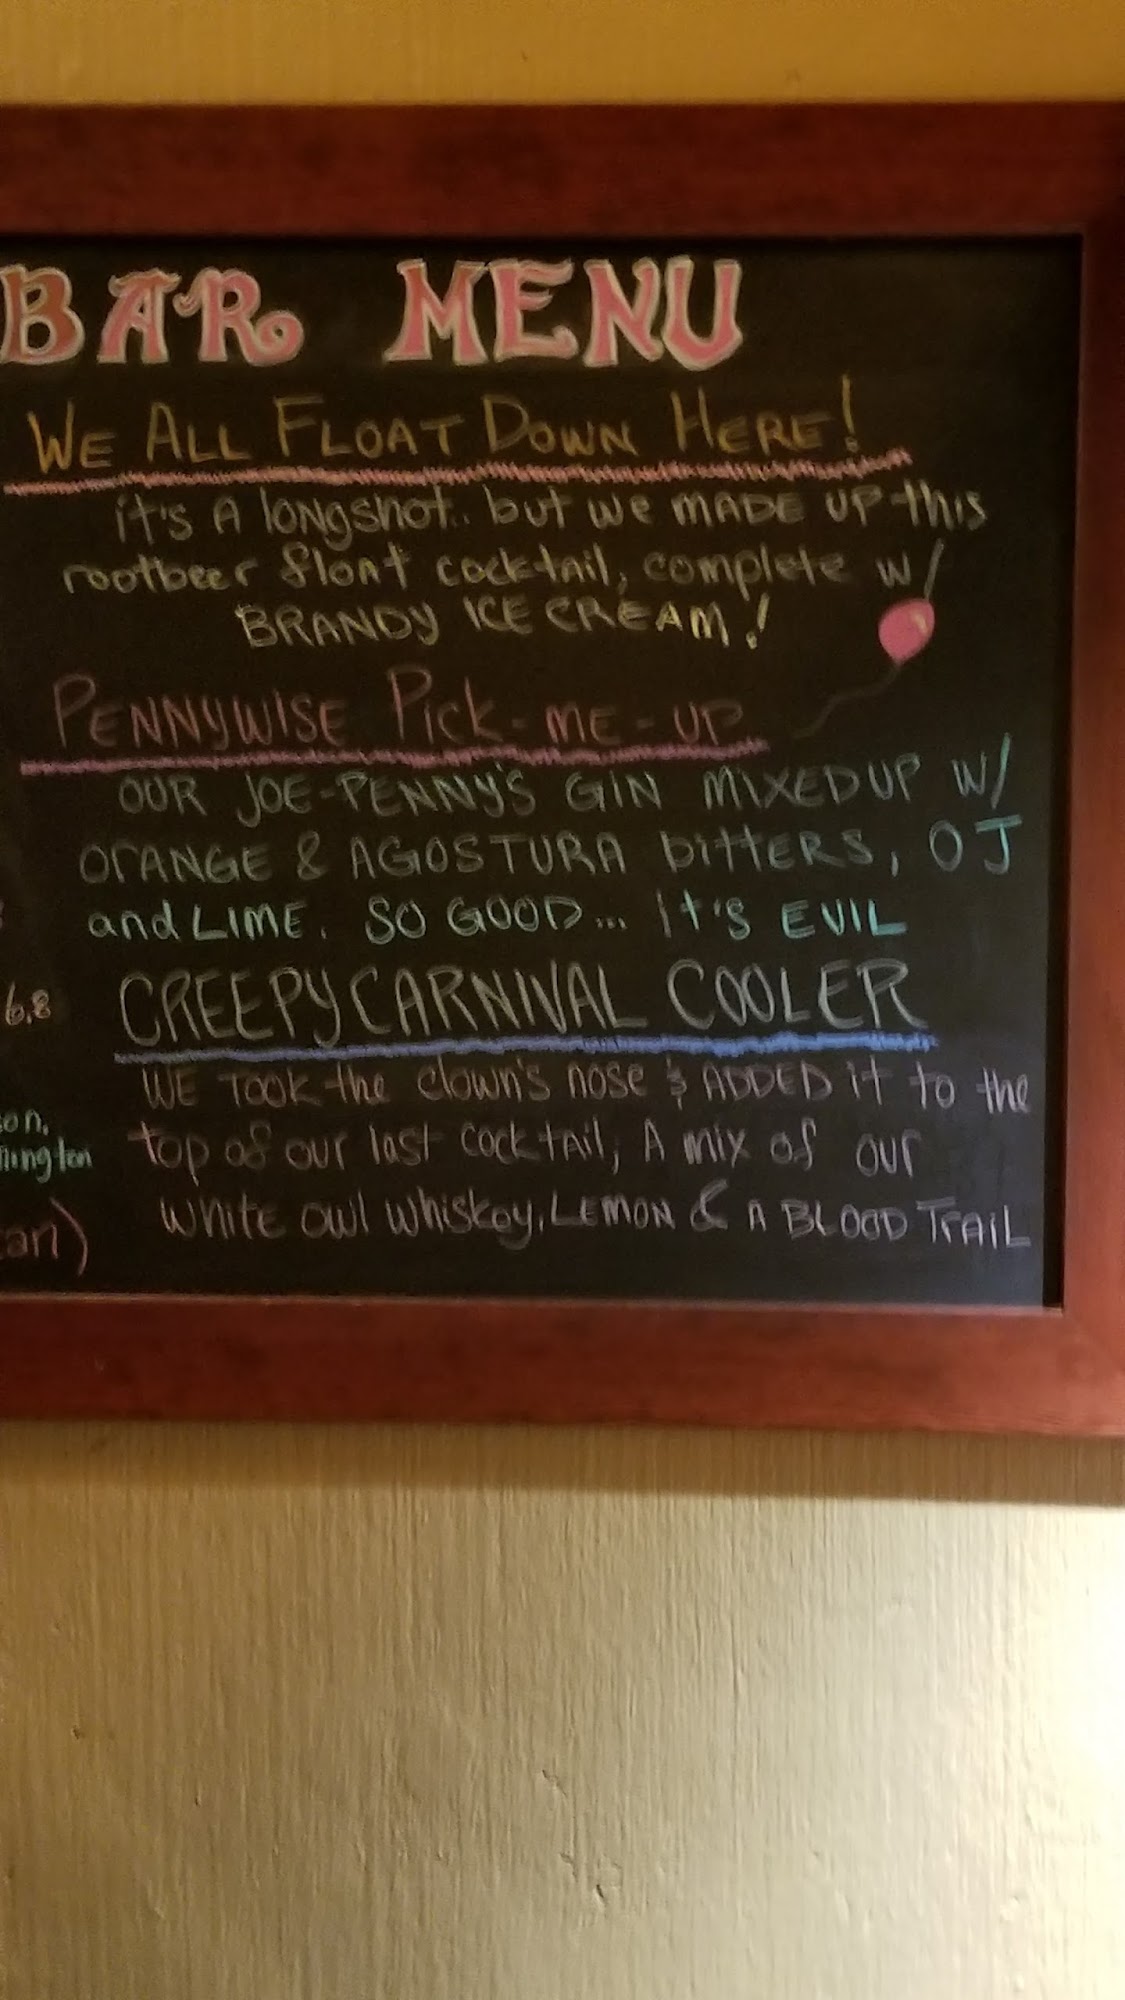 BAR MENU
WE ALL FLOAT DOWN HERE!
it's A longshot.. but we MADE UP this
rootbeer float cocktail, complete w/
BRANDY ICE CREAM!
PENNYWISE PICK-ME-UP
OUR JOE-PENNY'S GIN MIXED UP W/
ORANGE & AGOSTURA bittERS, OJ
and LIME. SO GOOD... It'S EVIL
6.8
CREEPY CARNIVAL COOLER
WE TOOK the clown's nose & ADDED it to the
on,
top of our last cocktail, A mix of our
lington
white owl whiskey, LEMON & A BLOOD TRAIL
an)